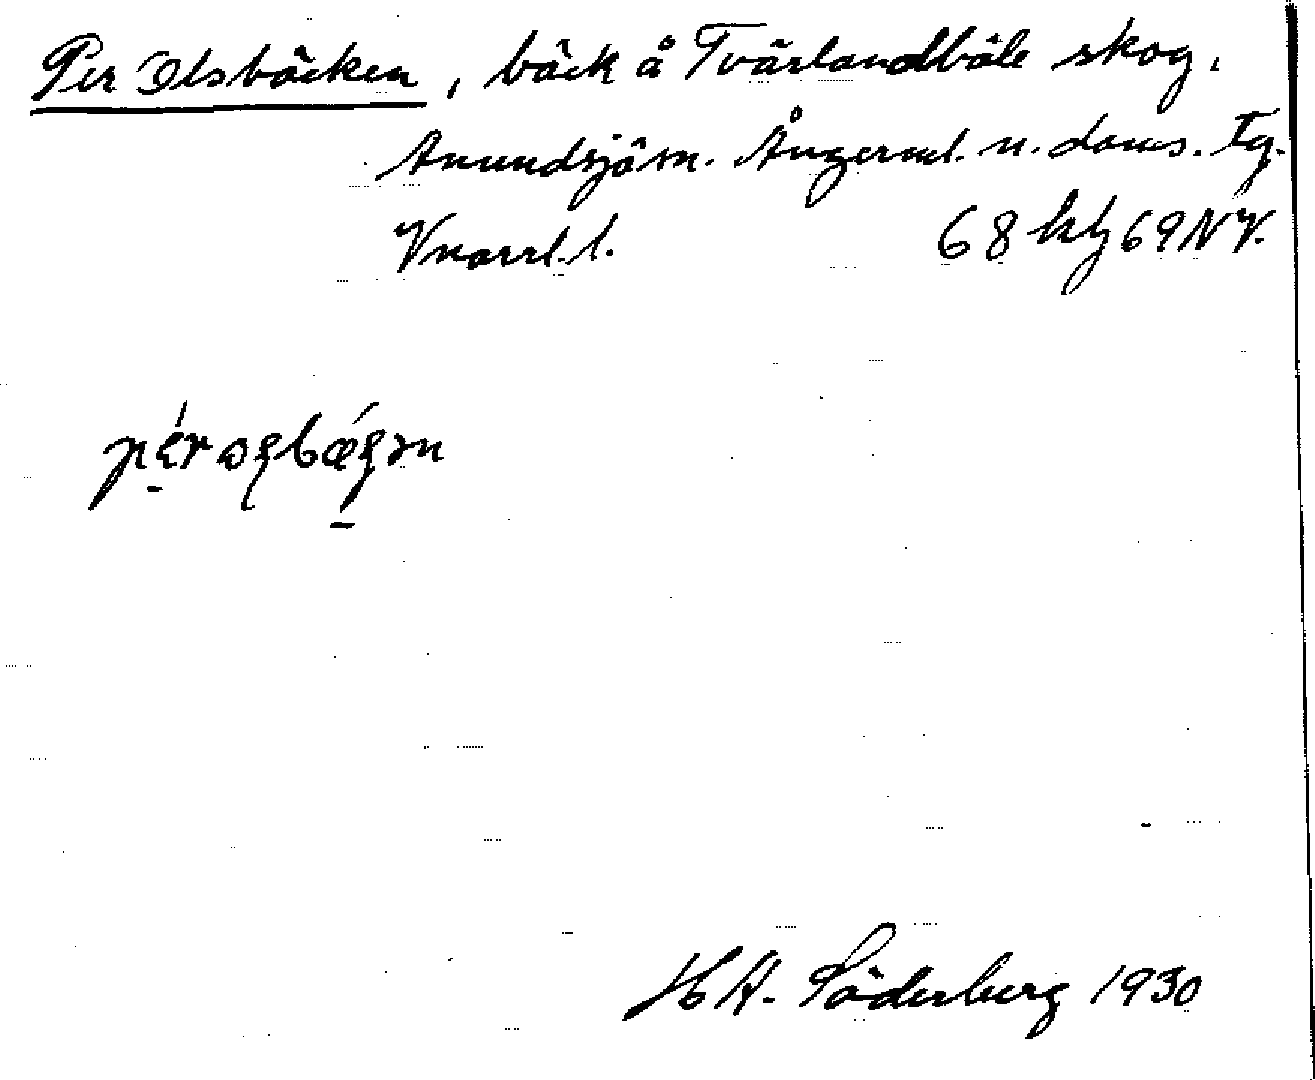 Per Olsbäcken, bäck å Tvärlandböle skog,
Anundsjö sn. Ångerml. n. doms. Tg.
Vnorrl. l. 68 hg 69 NV.
H A. Söderberg 1930